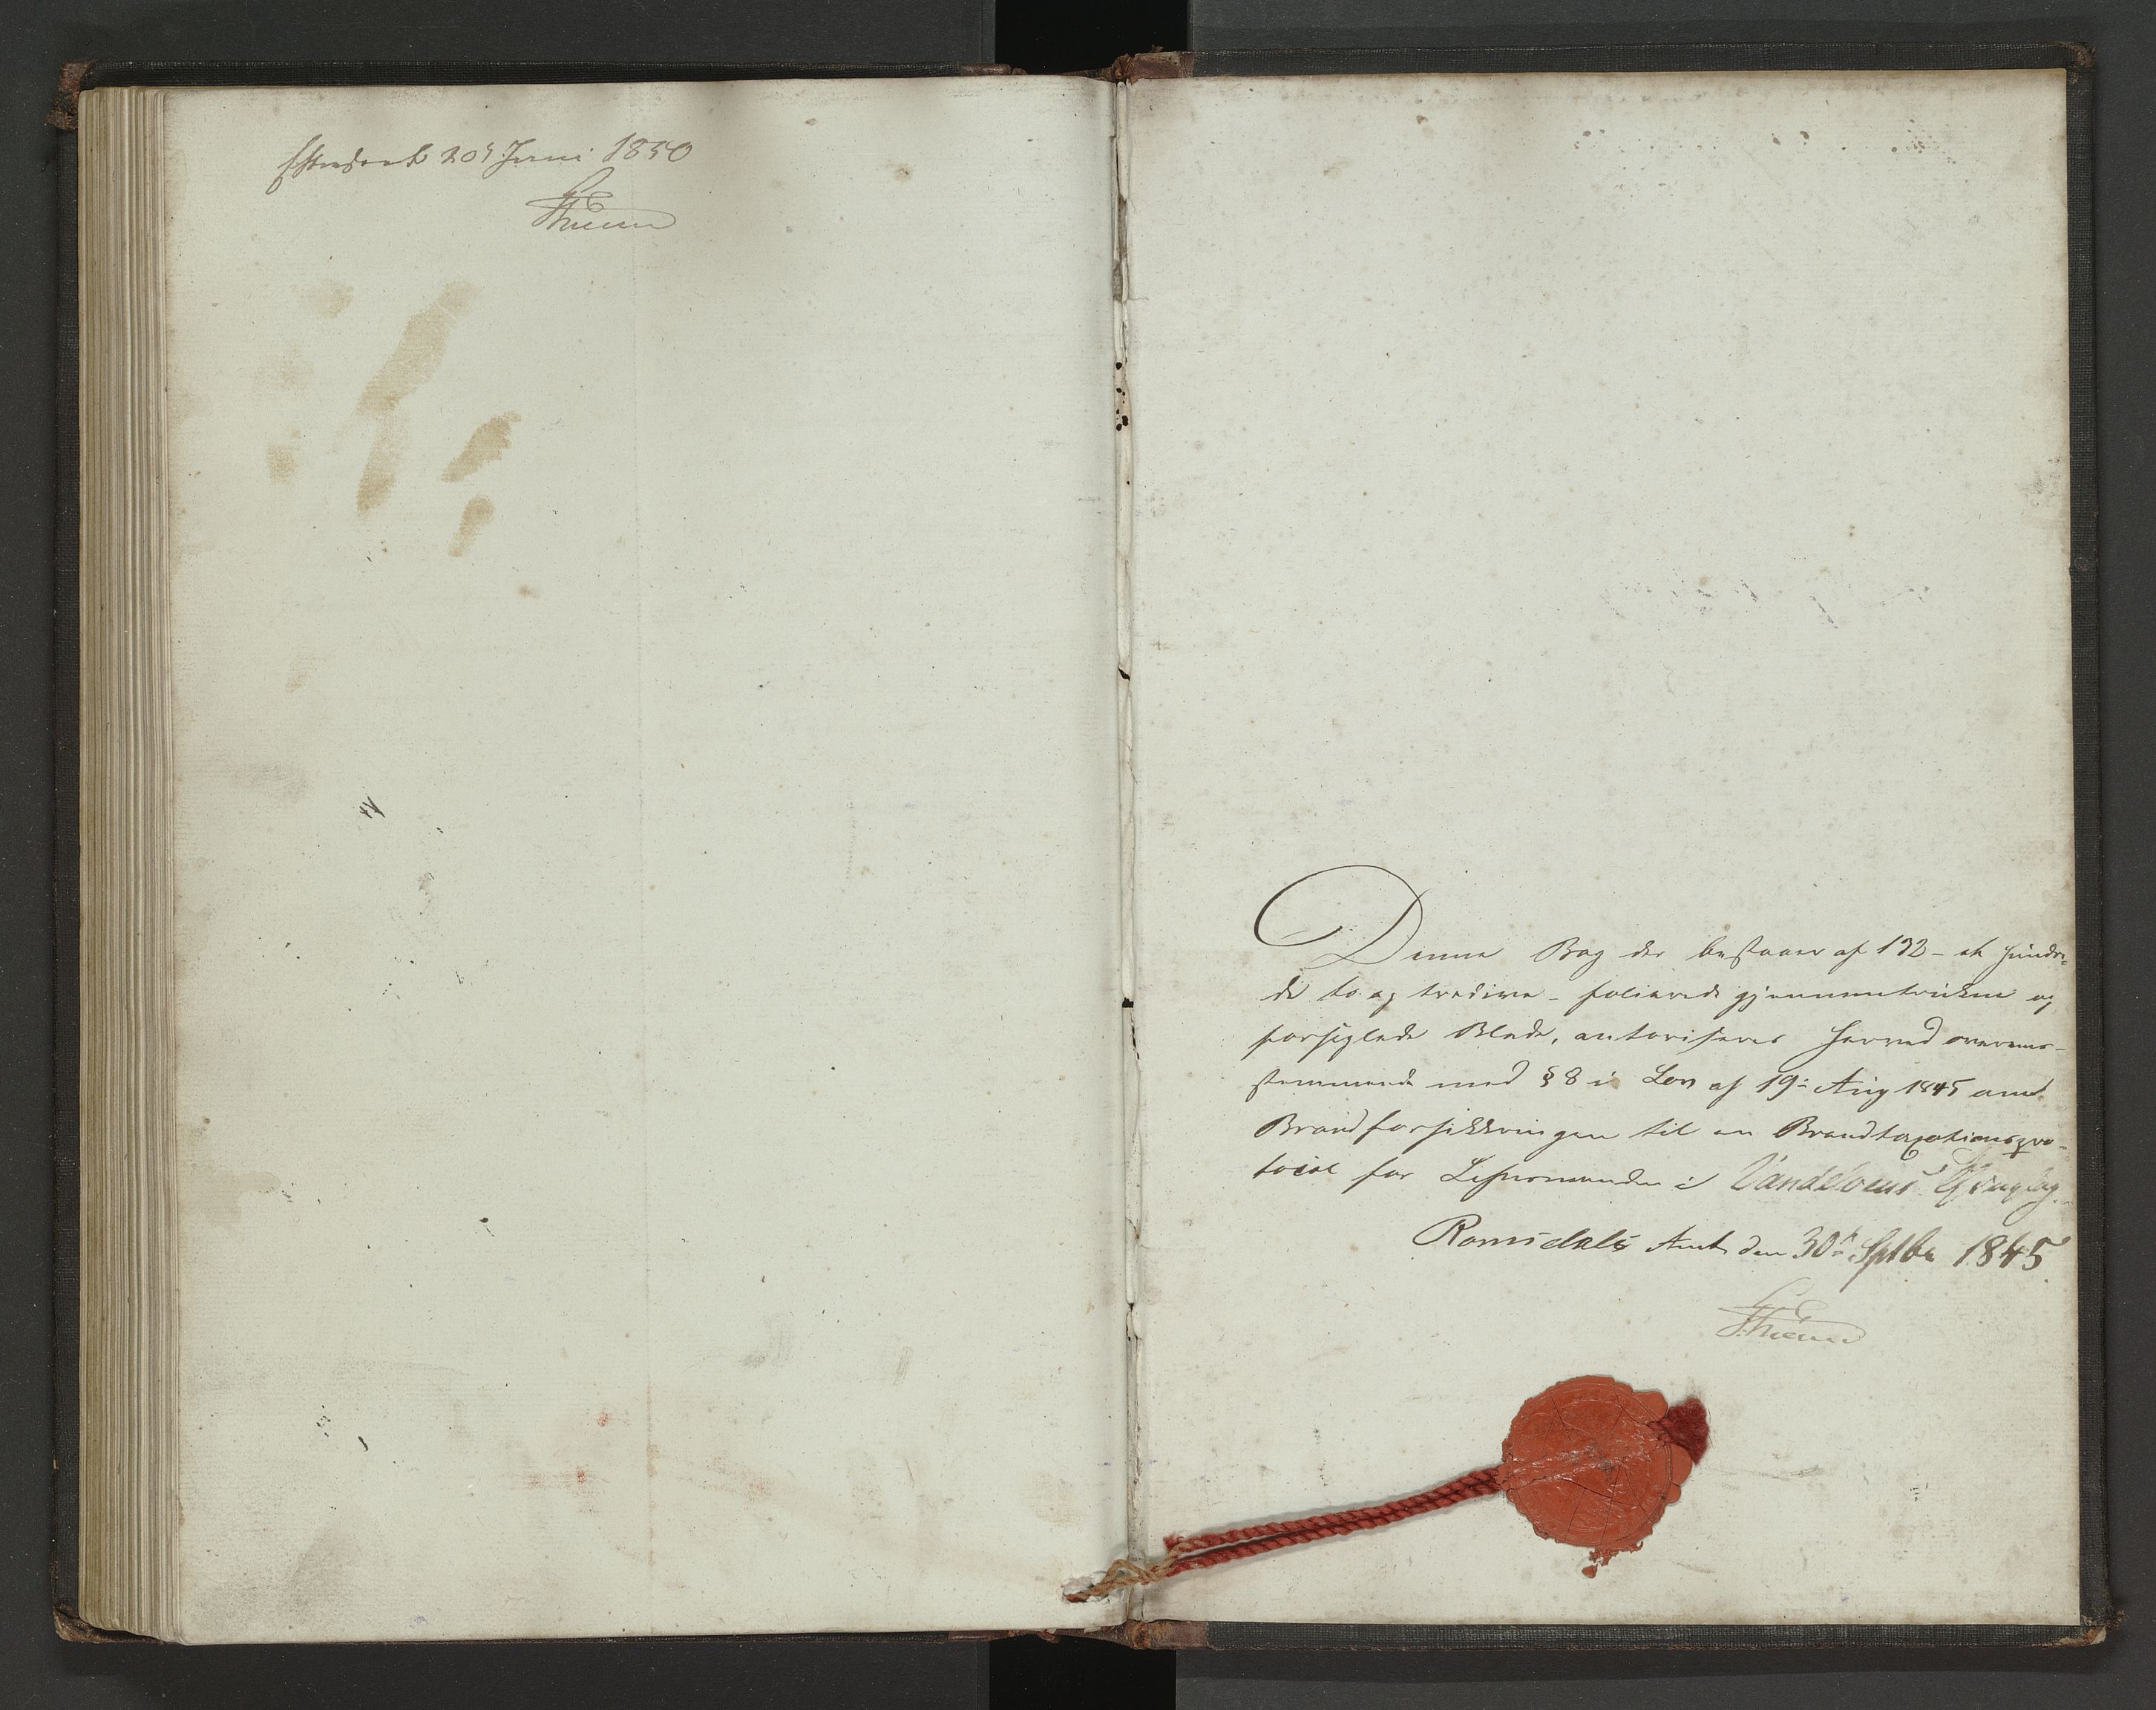 Efterseet 20de Juni 1850
Thesen
Denne Bog der bestaaer af 132 - et hundre-
de to og tredive - folierede gjennemtrukne og
forseglede Blade, autoriseres herved overens-
stemmende med § 8 i Lov af 19: Aug 1845 om
Brandforsikkringen til en Brandtaxationspro-
tocol for Lehnsmanden i Vandelvens Thinglag.
Romsdals Amt den 30te Septbr 1845